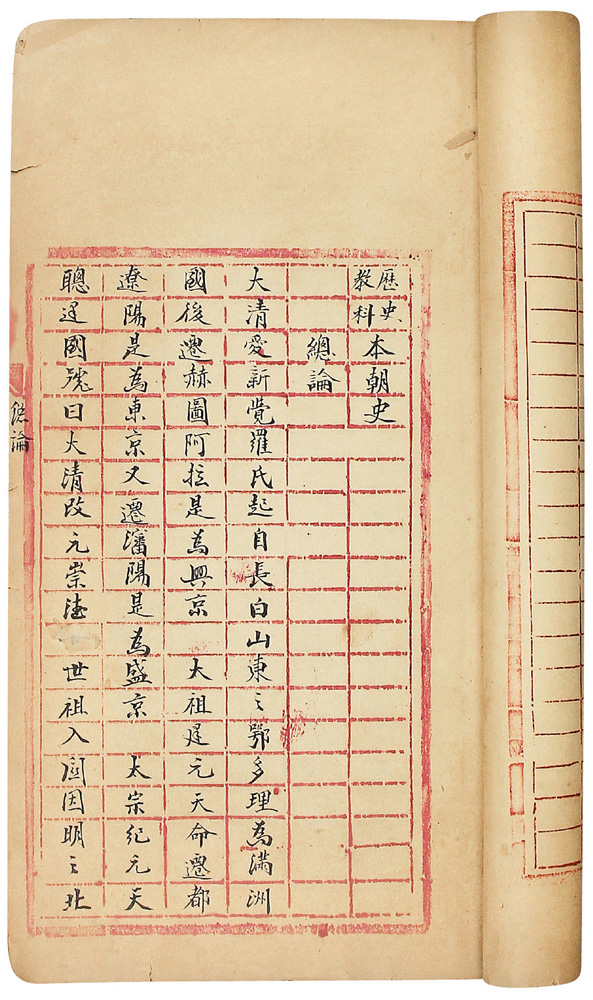 歷史教科本朝史
總論
大清愛新覺羅氏起自長白山東之鄂多理為滿洲
國後遷赫圖阿拉是為興京 大祖建元天命遷都
遼陽是為東京又遷瀋陽是為盛京 太宗紀元天
聰建國號曰大清改元崇德 世祖入關因明之北
總論